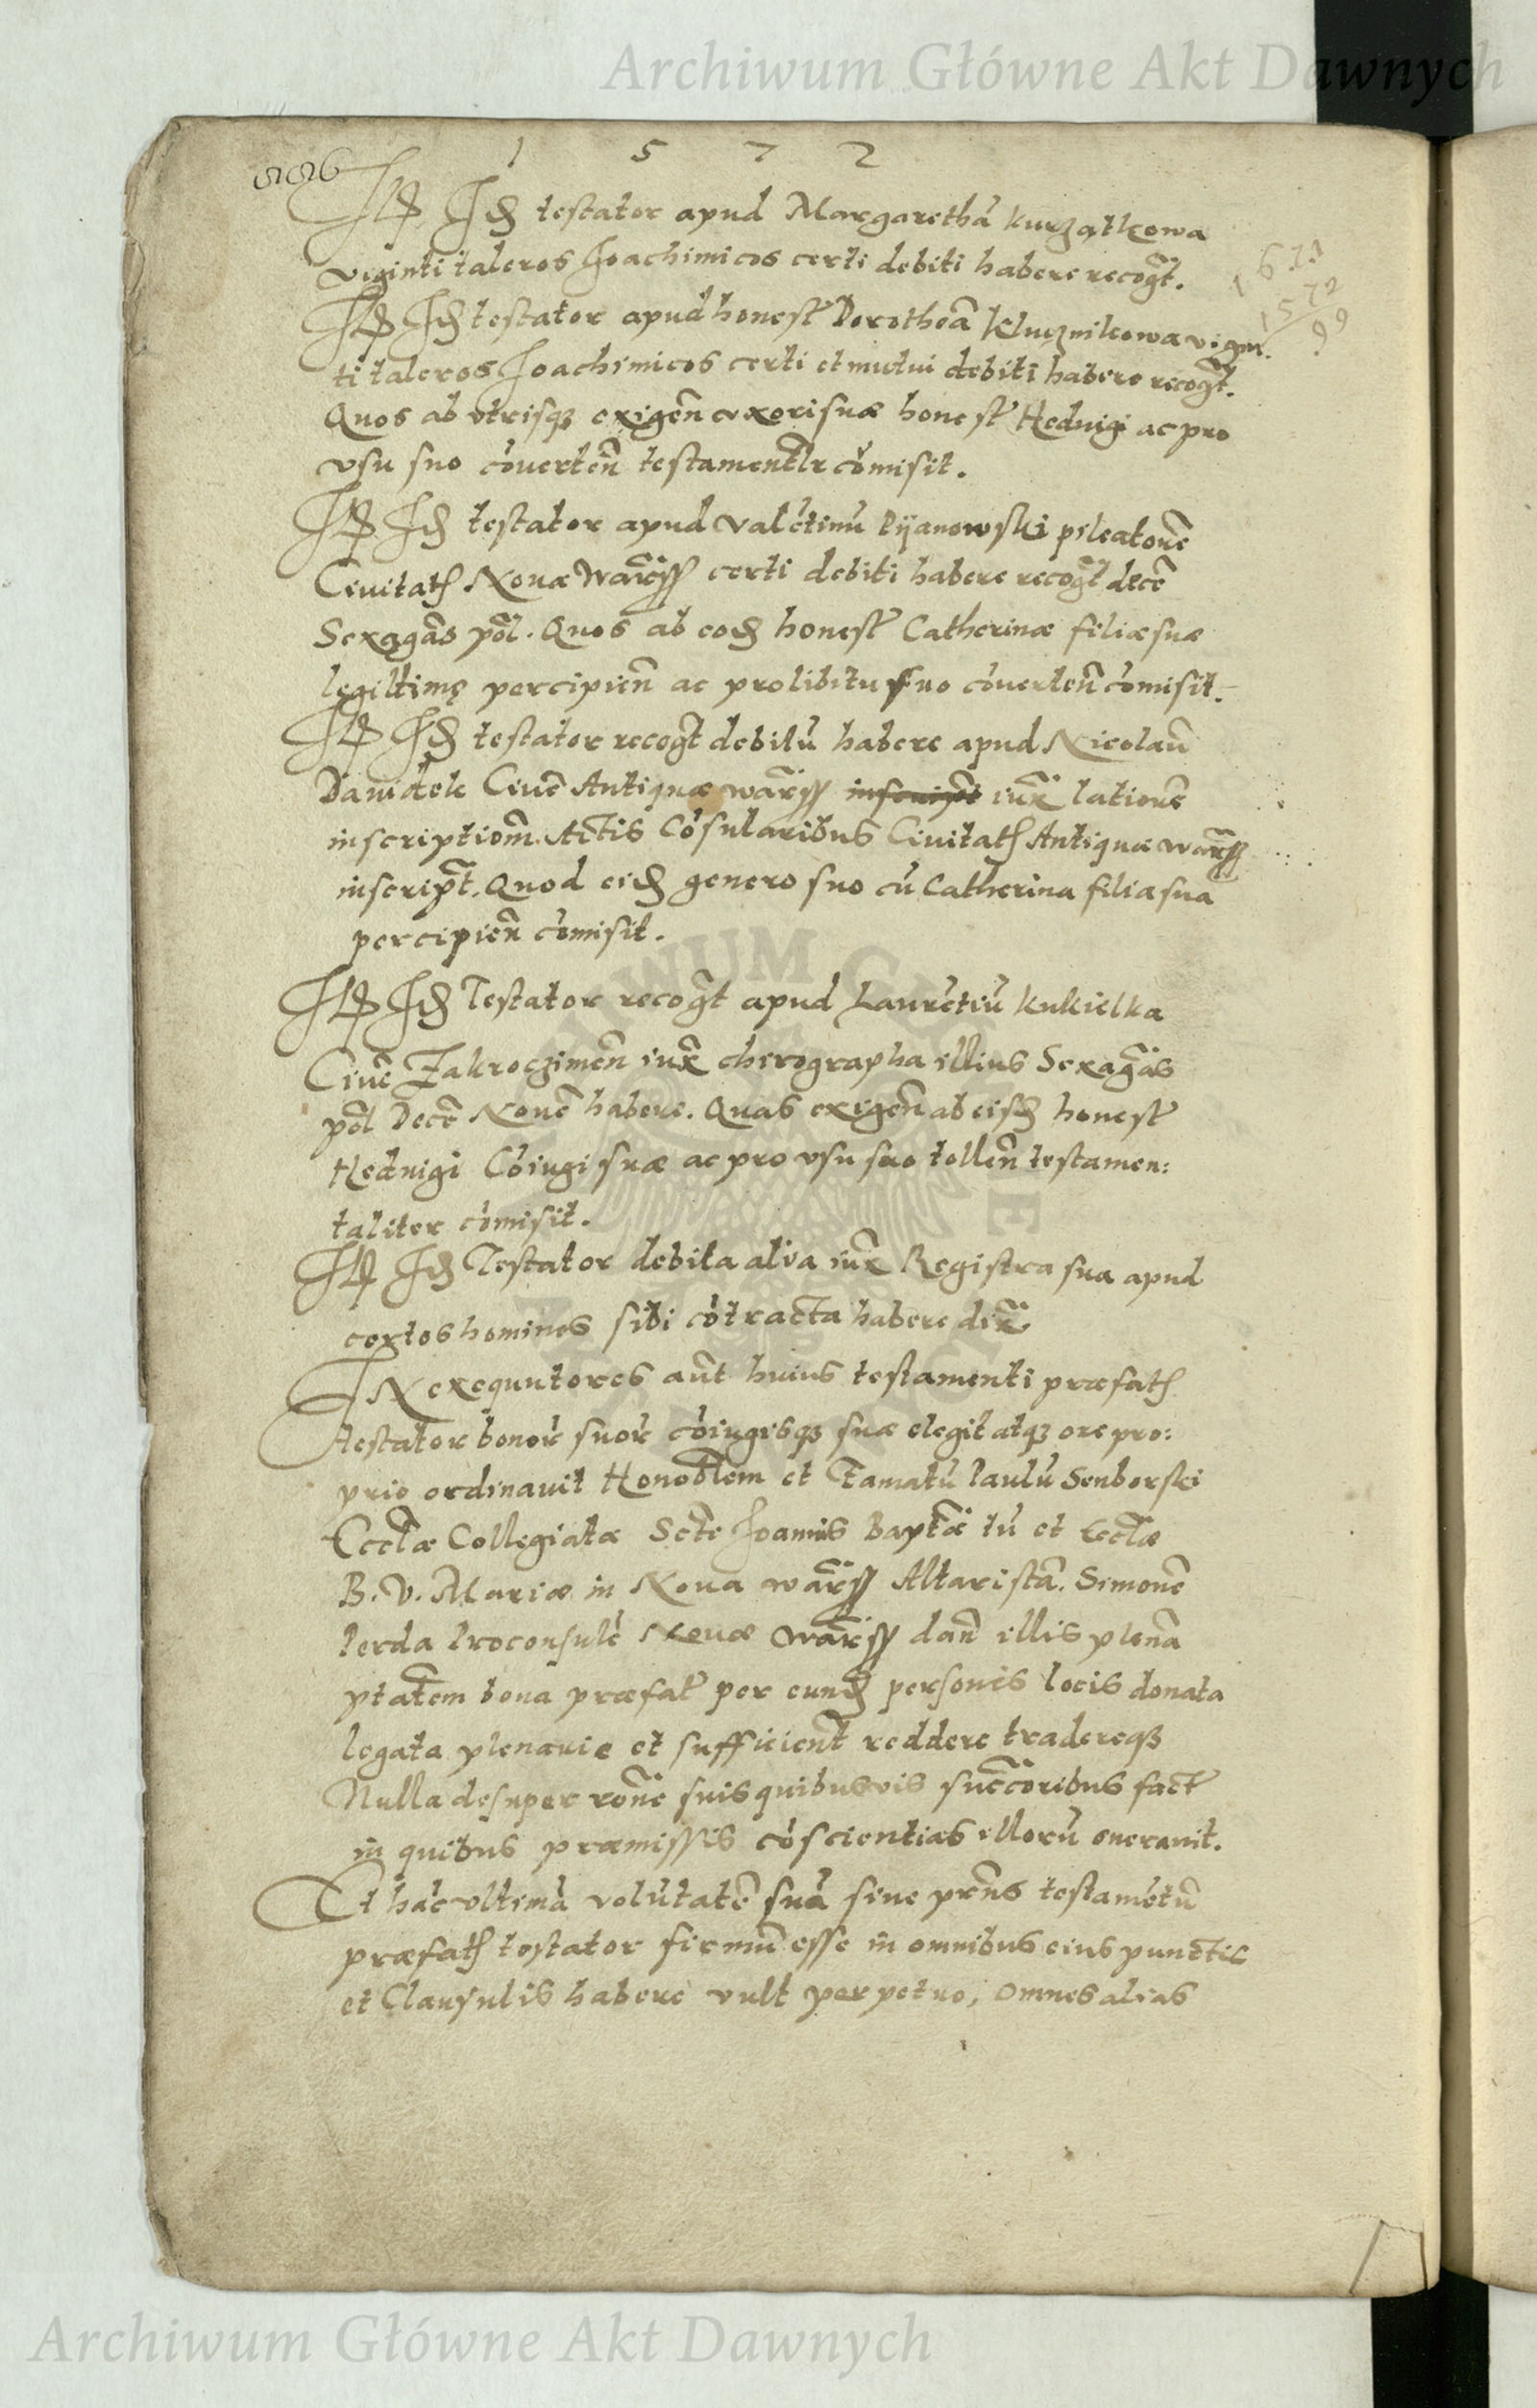 Archiwum Główne Akt Dawnych
1 5 7 2
Itē Idē testator apud Margarethā Kurzątkowa
viginti taleros Joachimicos certi debiti habere recogt̃.
1671
1572
99
Itē Idē testator apud honest̃ Dorotheā Klucznikowa vigin:
ti taleros Joachimicos certi et mutui debiti habere recogt̃.
Quos ab vtrisq₃ exigeñ vxori suæ honest̃ Hedvigi ac pro
vsu suo cōverteñ testamentlr̃ cōmisit.
Itē Idē testator apud Valētinū Dyanowski pileatorē
Civitatꝭ Novæ Warss̃ certi debiti habere recogt̃ decē
Sexagās pol̃. Quos ab eodē honest̃ Catherinæ filiæ suæ
legittimę percipieñ ac pro libitu suo cōverteñ cōmisit.
Itē Idē testator recogt̃ debitū habere apud Nicolaū
Davidek Civē Antiquæ Warss̃ inscript̃ iux̃ lationē
inscriptiom̃ Actis Cōsularibus Civitatꝭ Antiquæ Warss̃
inscript̃. Quod eidē genero suo cū Catherina filia sua
percipieñ cōmisit.
Itē Idē Testator recogt̃ apud Laurētiū Kukielka
Civē Zakroczimeñ iux̃ cherographa illius Sexagās
pol̃ Decē Novē habere. Quas exigeñ ab eisdē honest̃
Hedvigi Cōiugi suæ ac pro vsu suo tolleñ testamen:
taliter cōmisit.
Itē Idē Testator debita alia iux̃ Registra sua apud
certos homines sibi cōtracta habere dix̃
IN exequutores aũt huius testamenti præfatꝭ
testator bonor̃ suor̃ cōiugisq₃ suæ elegit atq₃ ore pro:
prio ordinavit Honoblem̃ et Famatū Paulū Senborski
Eccłæ Collegiatæ Scte Joannis Baptæ̃ tū et Eccłæ
B. V. Mariæ in Nova Warss̃ Altaristā. Simonē
Perda Proconsulē Novæ Warss̃ dañ illis plenā
ptatem̃ bona præfat̃ per eundē personis locis donata
legata plenarie et sufficient̃ reddere tradereq₃
Nulla desuper rōne suis quibusvis succ̃oribus fact̃
in quibus præmissis cōscientias illorū oneravit.
Et hāc vltimā volūtatē suā sive prñs testamētū
præfatꝭ testator firmū esse in omnibus eius punctis
et Clausulis habere vult perpetuo, omnes alias
Archiwum Główne Akt Dawnych